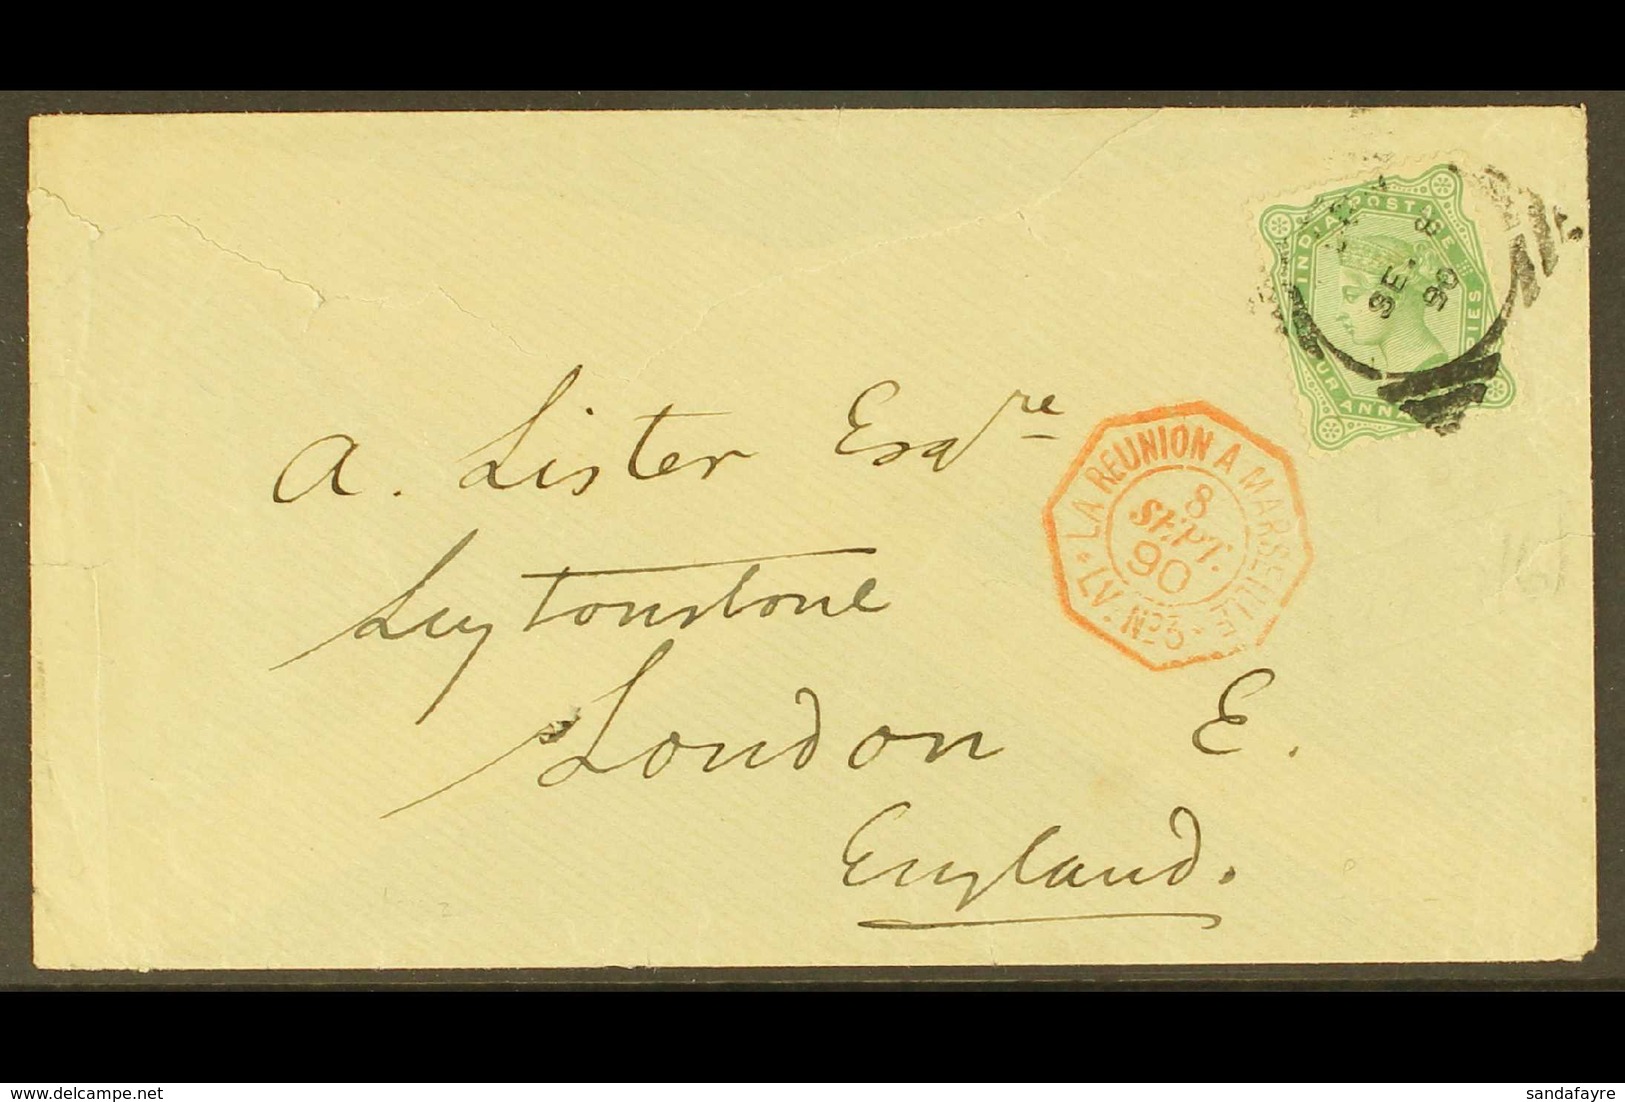 INDIA POSTAGE
SE. 8
90
A. Lister Esqre
LA REUNION A MARSEILLE
8
SEPT.
90
LV. No 3
Leytonstone
London E.
England.
sandafayre